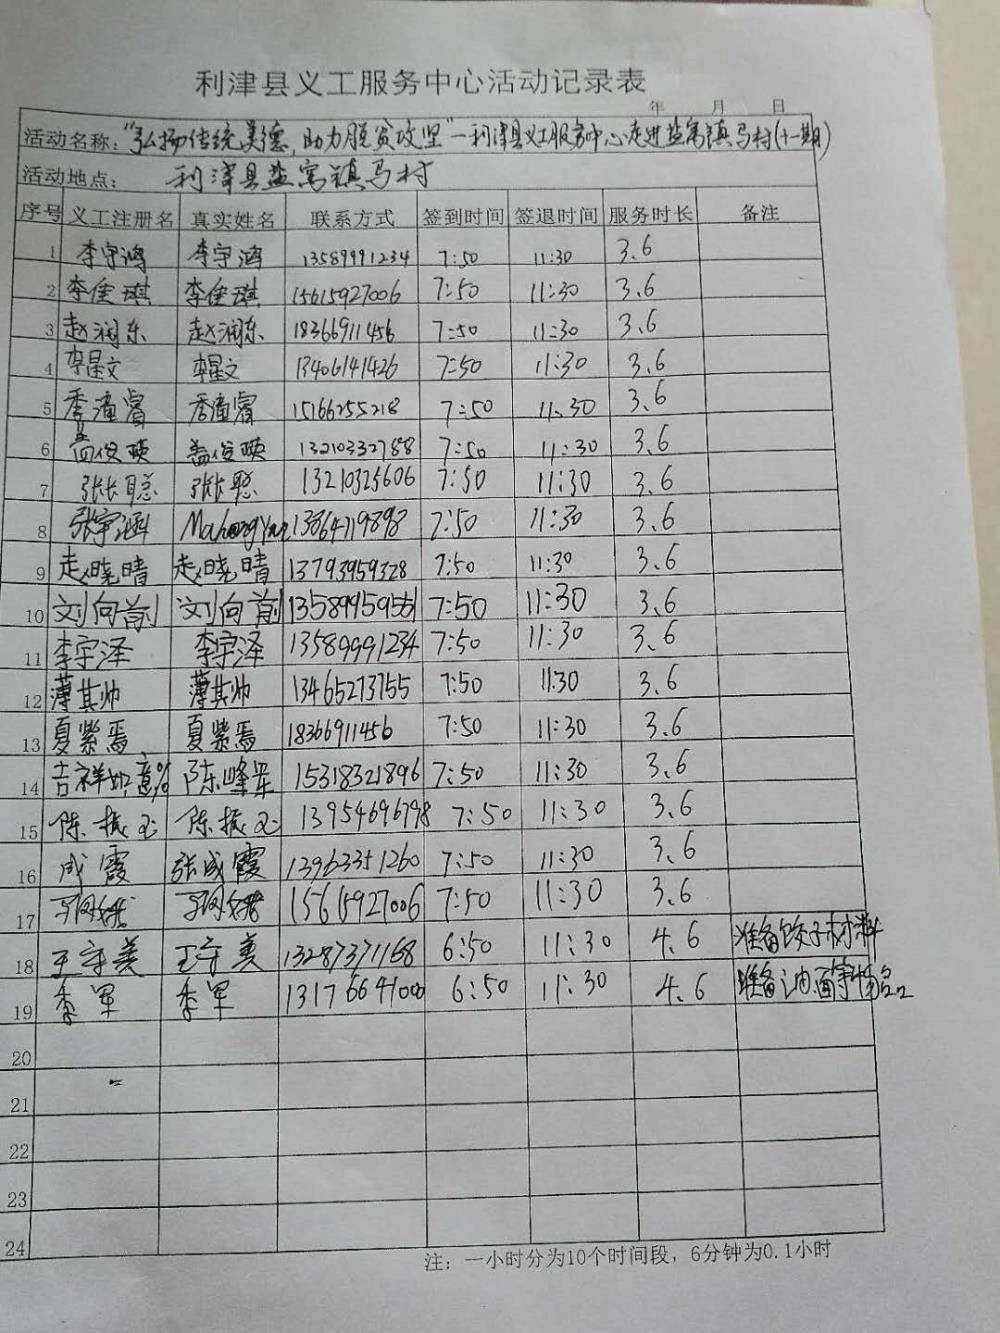 利津县义工服务中心活动记录表
年 月 日
活动名称："弘扬传统美德，助力脱贫攻坚"—利津县义工服务中心走进盐窝镇马村(十一期)
活动地点： 利津县盐窝镇马村
序号 义工注册名 真实姓名 联系方式 签到时间 签退时间 服务时长 备注
1 李宇鸿 李宇鸿 13589991234 7:50 11:30 3.6
2 李佳琪 李佳琪 15615927006 7:50 11:30 3.6
3 赵润东 赵润东 18366911456 7:50 11:30 3.6
4 李星文 李星文 13406141426 7:50 11:30 3.6
5 季潼睿 季潼睿 15166255218 7:50 11:30 3.6
6 盖俊瑛 盖俊瑛 13210332788 7:50 11:30 3.6
7 张长聪 张长聪 13210325606 7:50 11:30 3.6
8 张宇涵 13864719898 7:50 11:30 3.6
9 赵晓晴 赵晓晴 13793959328 7:50 11:30 3.6
10 刘向前 刘向前 13589959551 7:50 11:30 3.6
11 李宇泽 李宇泽 13589991234 7:50 11:30 3.6
12 薄其帅 薄其帅 13465273755 7:50 11:30 3.6
13 夏紫焉 夏紫焉 18366911456 7:50 11:30 3.6
14 吉祥如意 陈峰军 15318321896 7:50 11:30 3.6
15 陈振玉 陈振玉 13954696798 7:50 11:30 3.6
16 成霞 张成霞 13963351260 7:50 11:30 3.6
17 15615927006 7:50 11:30 3.6
18 王守美 王守美 13287371168 6:50 11:30 4.6 准备饺子材料
19 季军 季军 13176641000 6:50 11:30 4.6 准备油面等物品
20
21
22
23
24
注：一小时分为10个时间段，6分钟为0.1小时